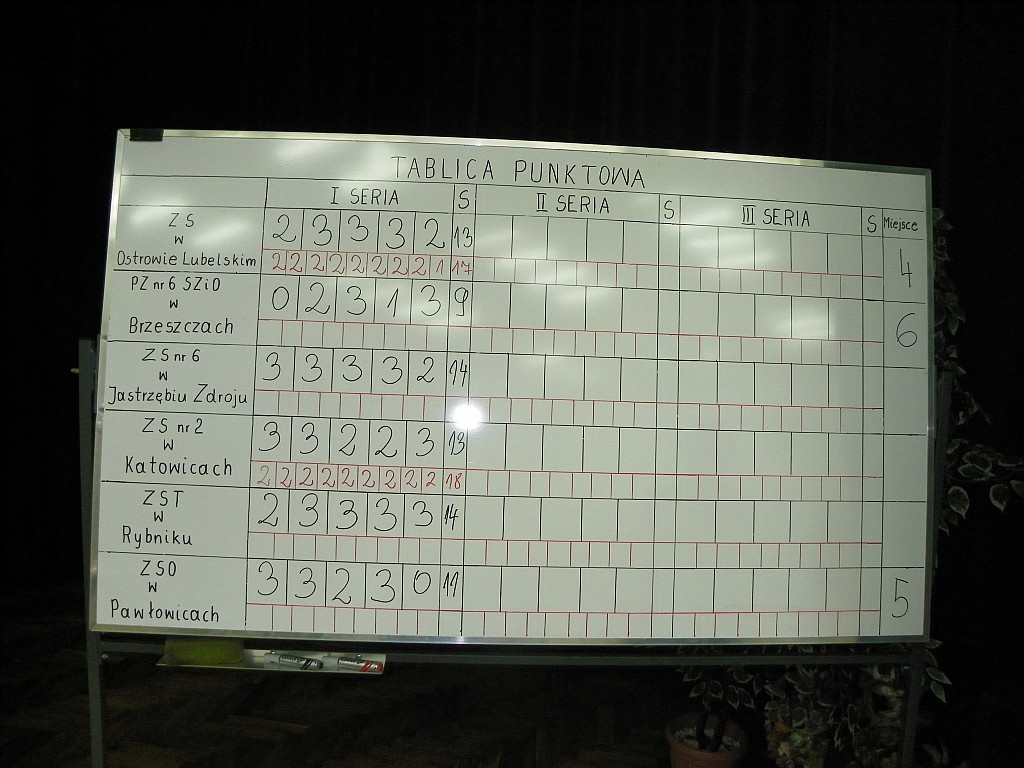 TABLICA PUNKTOWA
I SERIA S II SERIA S III SERIA S Miejsce
ZS
w
Ostrowie Lubelskim
2 3 3 3 2 13
2 2 2 2 2 2 2 1 17
4
PZ nr 6 SZiO
w
Brzeszczach
0 2 3 1 3 9
6
ZS nr 6
w
Jastrzębiu Zdroju
3 3 3 3 2 14
ZS nr 2
w
Katowicach
3 3 2 2 3 13
2 2 2 2 2 2 2 2 2 18
ZST
w
Rybniku
2 3 3 3 3 14
ZSO
w
Pawłowicach
3 3 2 3 0 11
5